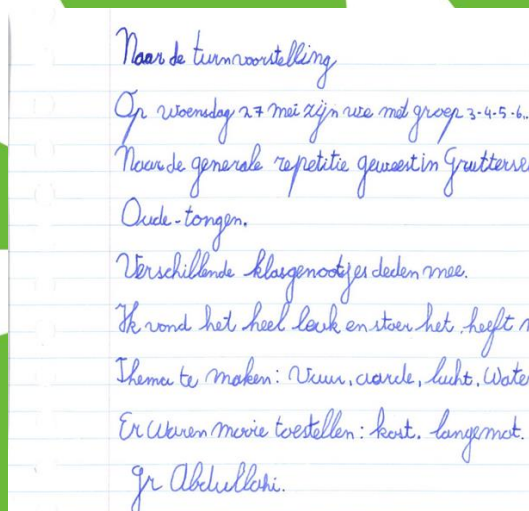 Naar de turnvoorstelling
Op woensdag 27 mei zijn we met groep 3-4-5-6..
Naar de generale repetitie geweest in Grutterswe
Oude-tongen.
Verschillende klasgenootjes deden mee.
Ik vond het heel leuk en stoer het heeft
Thema te maken: Vuur, aarde, lucht, Water
Er waren mooie toestellen: kast. langemat.
gr Abdullahi.